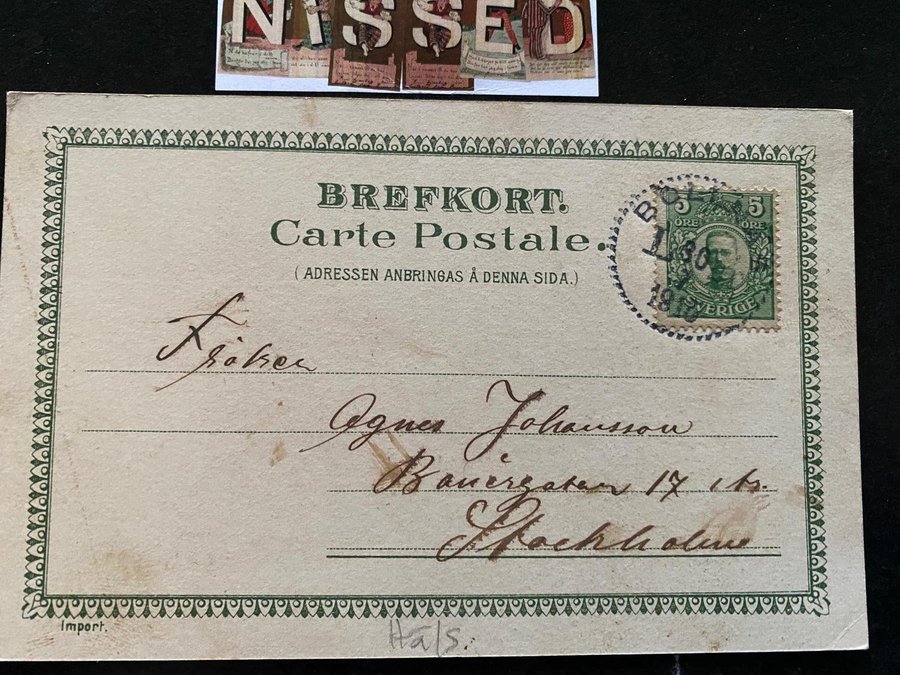 NISSED
BREFKORT.
Carte Postale.
(ADRESSEN ANBRINGAS Å DENNA SIDA.)
5 5
ÖRE ÖRE
SVERIGE
30
Fröken
Agnes Johansson
Banérgatan 17
Stockholm
Import.